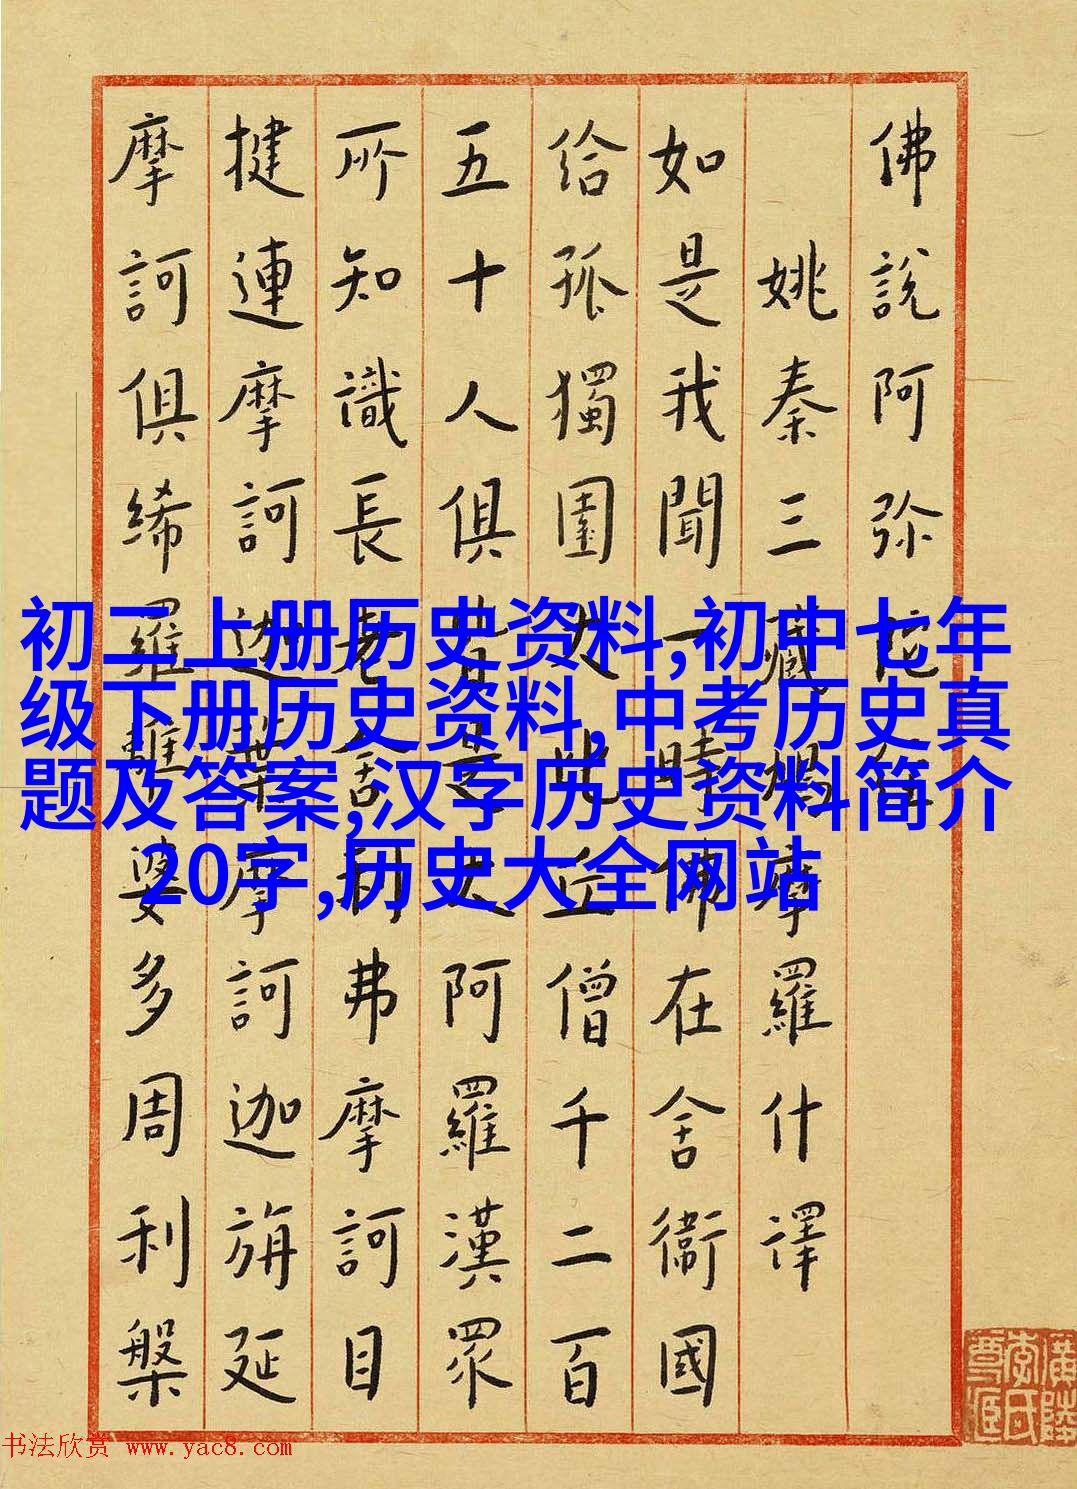 佛說阿弥陀經
姚秦三藏鳩摩羅什譯
如是我聞一時佛在舍衞國
给孤獨園大比丘僧千二百
五十人俱皆是大阿羅漢眾
所知識長老舍利弗摩訶目
揵連摩訶迦葉摩訶迦旃延
摩訶俱絺羅離婆多周利槃
初二上册历史资料,初中七年
级下册历史资料,中考历史真
题及答案,汉字历史资料简介
20字,历史大全网站
书法欣赏 www.yac8.com